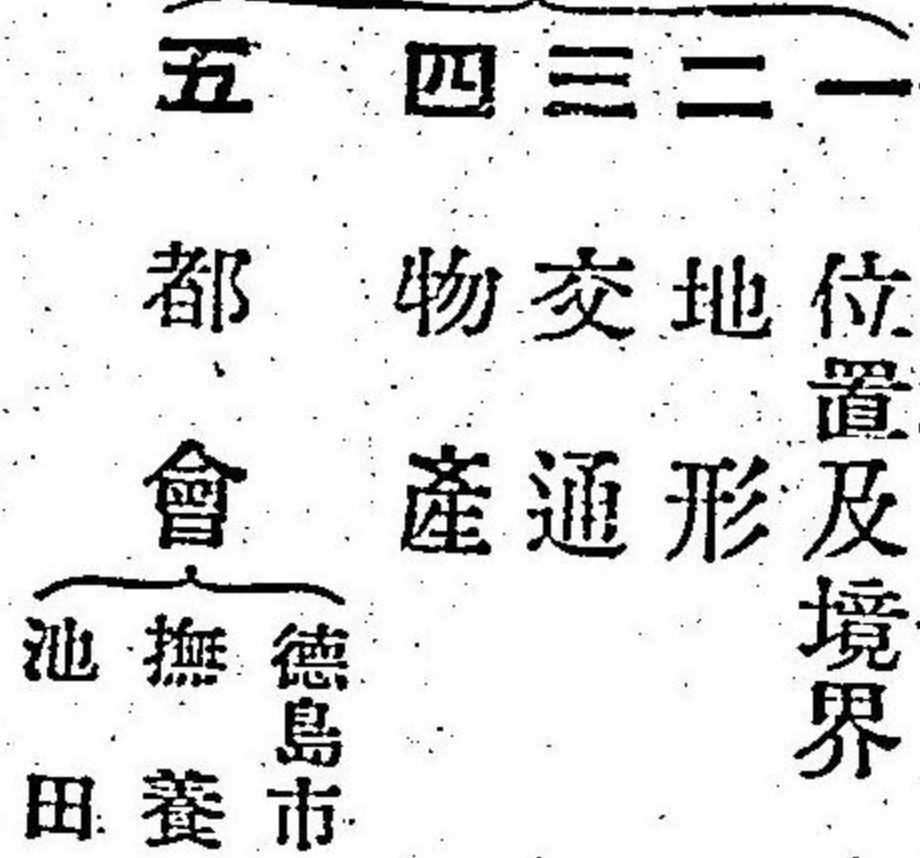 一 位置及境界
二 地形
三 交通
四 物產
五 都會
德島市
撫養
池田